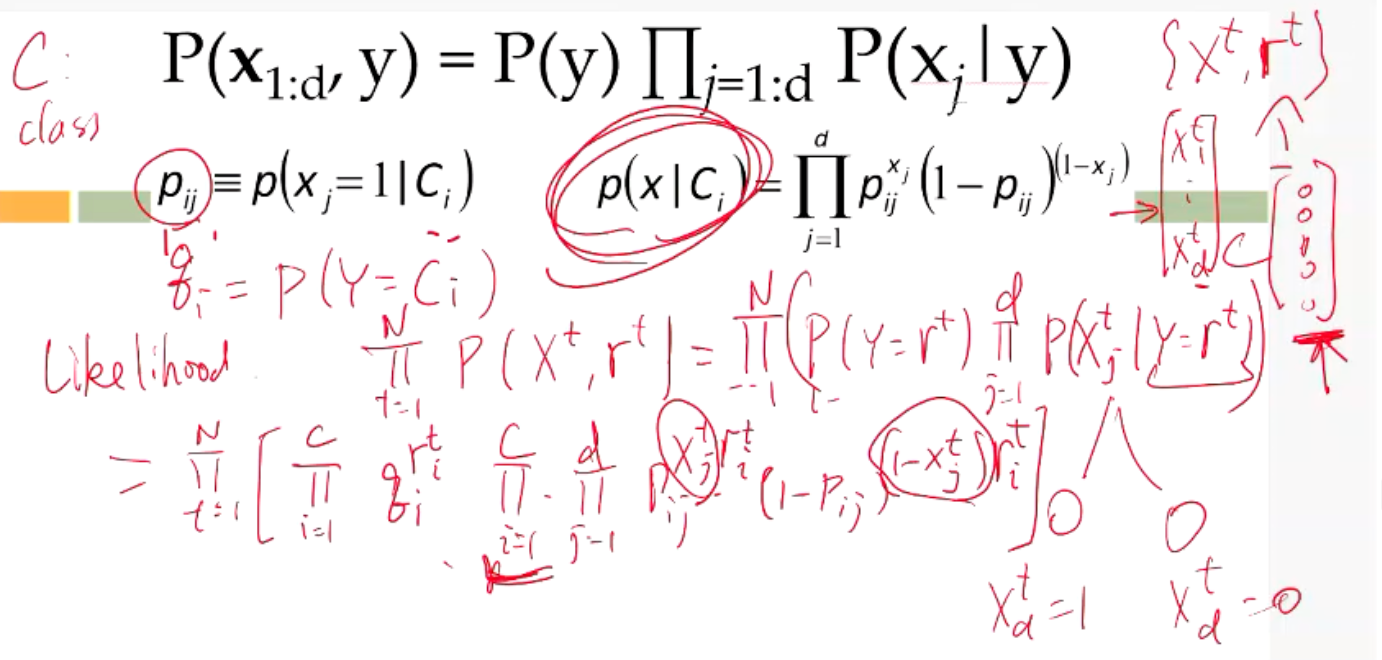 C: class
P(x₁:d, y) = P(y) ∏j=1:d P(xj | y)
{Xᵗ, rᵗ}
pij ≡ p(xj = 1 | Ci)
p(x | Ci) = ∏_{j=1}^{d} pij^{xj} (1 − pij)^{(1−xj)}
[X₁ᵗ ⋮ X_dᵗ]
C [0 0 1 0 0]
qi = P(Y = Ci)
Likelihood ∏_{t=1}^{N} P(Xᵗ, rᵗ) = ∏^{N} (P(Y = rᵗ) ∏_{j=1}^{d} P(Xjᵗ | Y = rᵗ))
= ∏_{t=1}^{N} [∏_{i=1}^{C} qi^{riᵗ} ∏_{i=1}^{C} · ∏_{j=1}^{d} Pij^{Xjᵗ riᵗ} (1 − Pij)^{(1−Xjᵗ) riᵗ}]
X_dᵗ = 1 X_dᵗ = 0